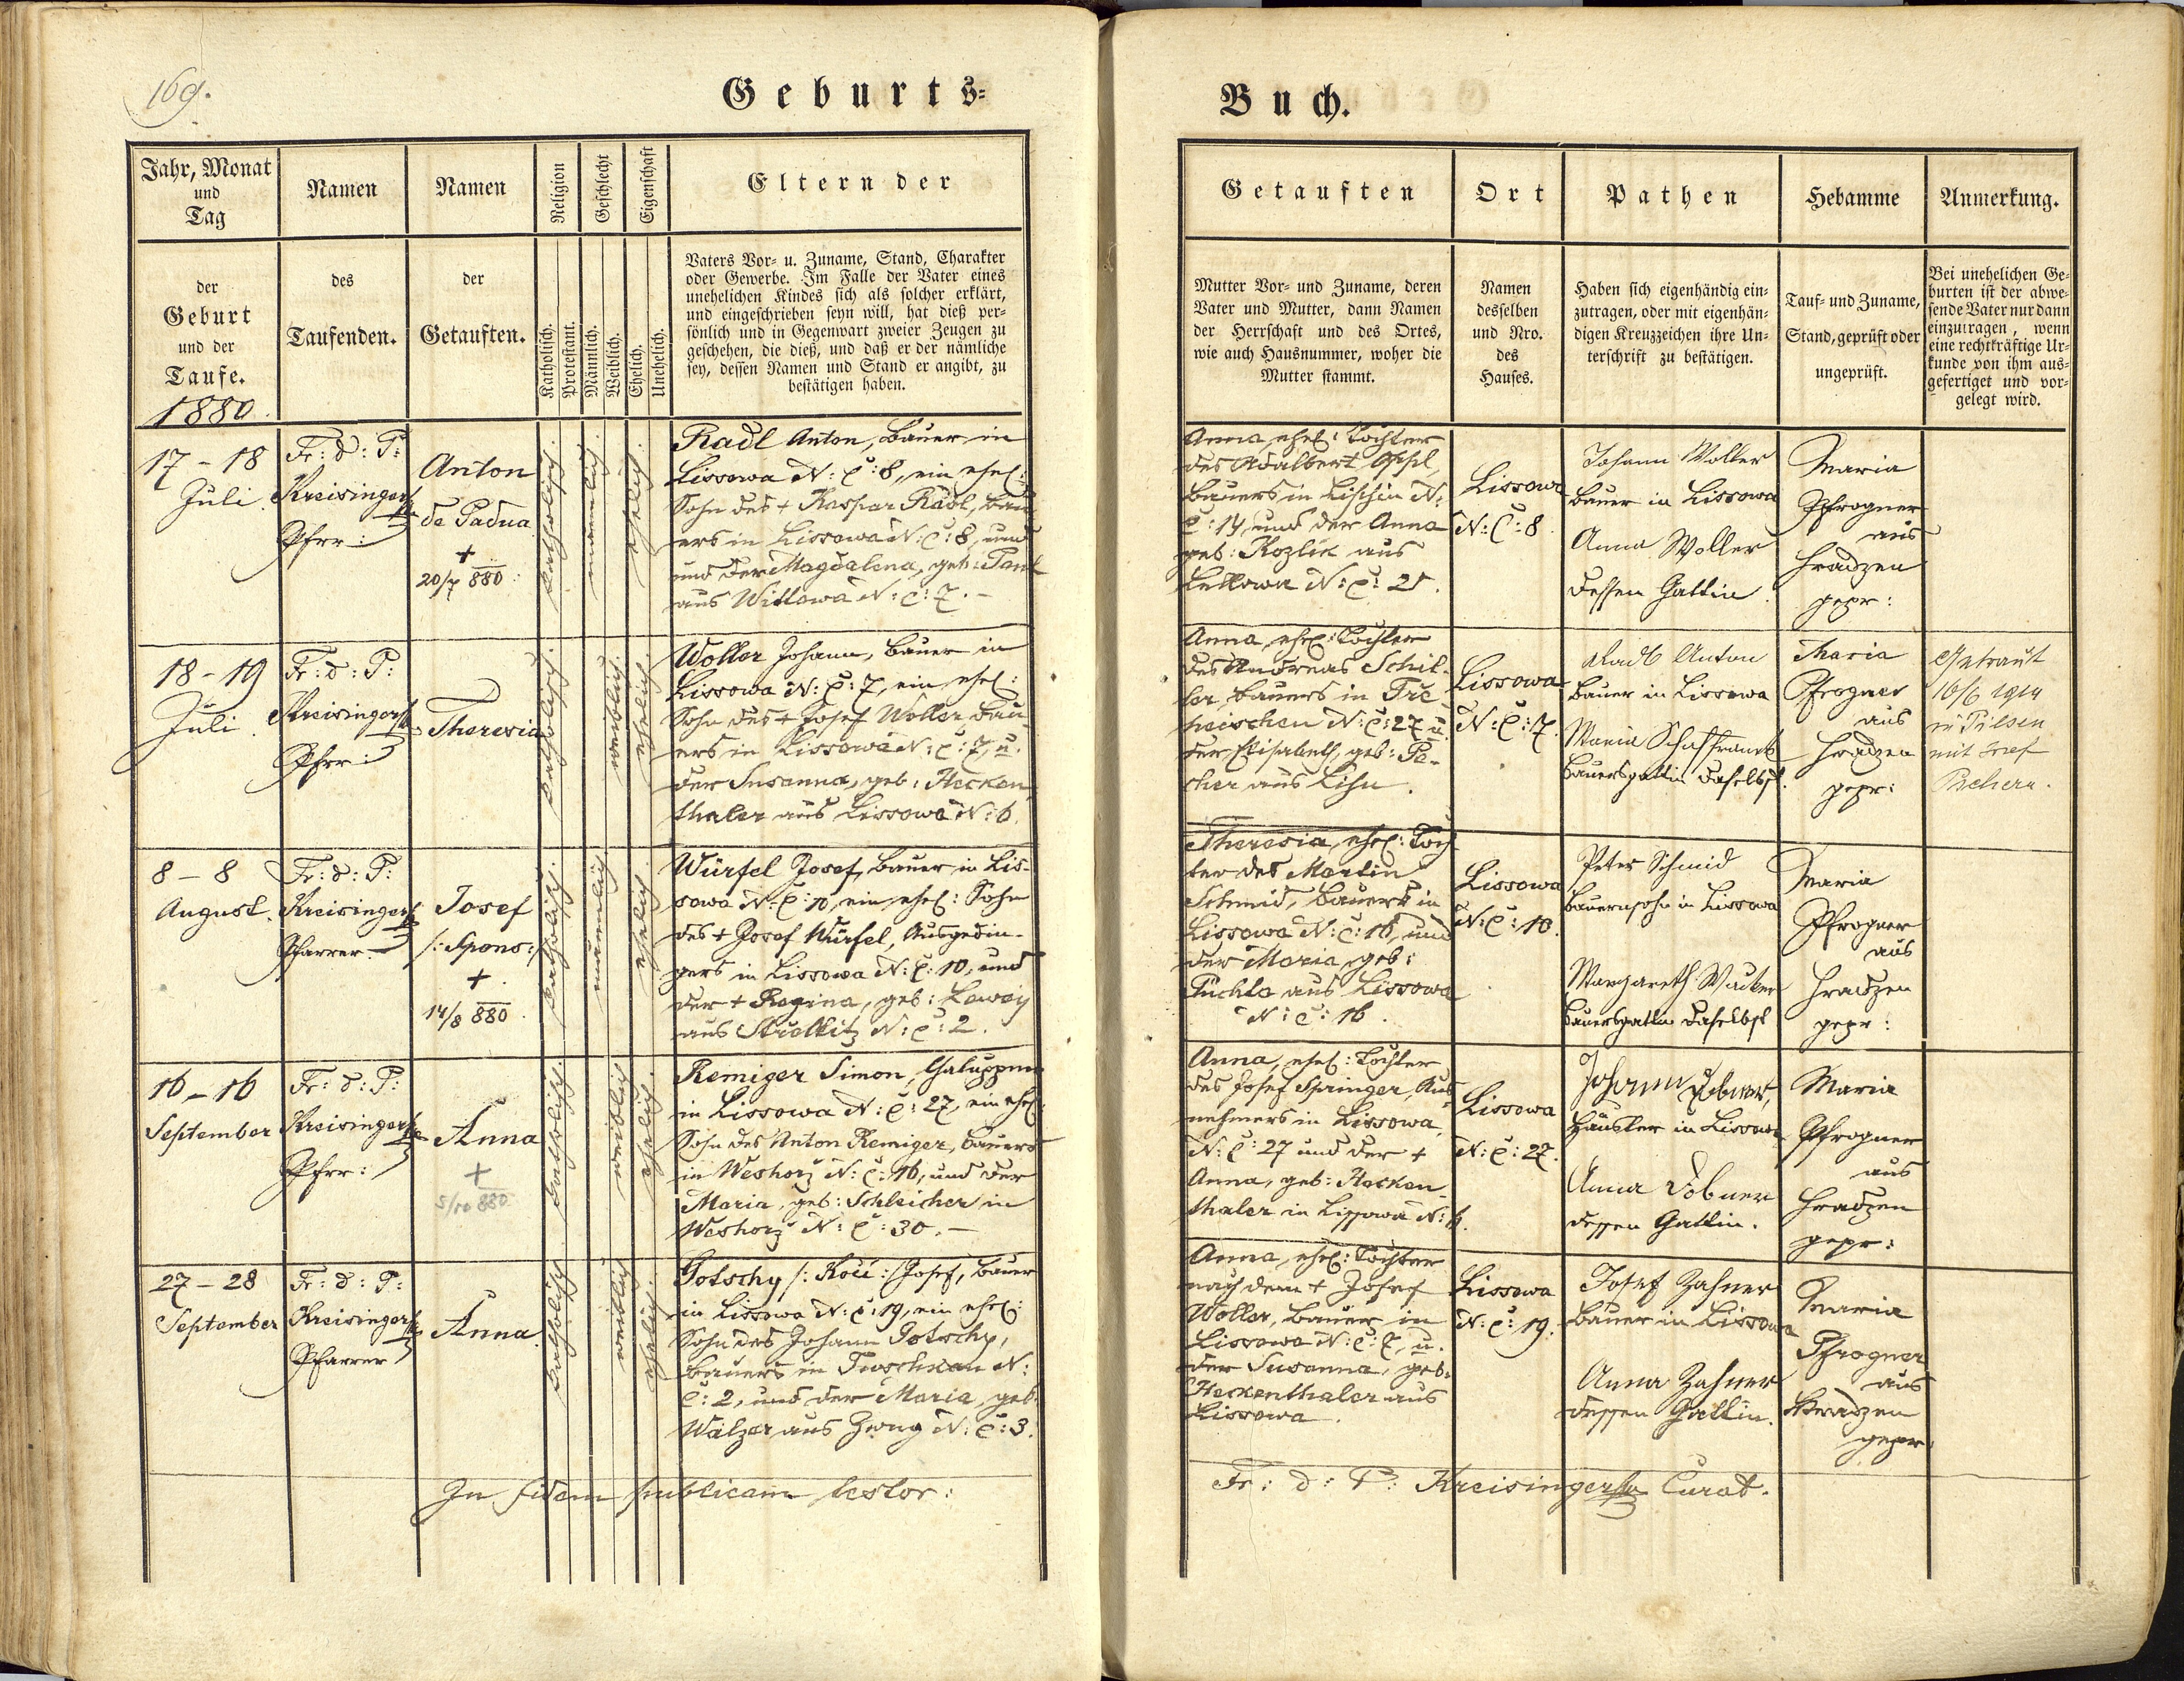 169.
Geburts-
Jahr, Monat
und
Tag
Namen
Namen
Religion
Geschlecht
Eigenschaft
Eltern der
der
Geburt
und der
Taufe.
1880.
des
Taufenden.
der
Getauften.
Katholisch.
Protestant.
Männlich.
Weiblich.
Ehelich.
Unehelich.
Vaters Vor- u. Zuname, Stand, Charakter
oder Gewerbe. Im Falle der Vater eines
unehelichen Kindes sich als solcher erklärt,
und eingeschrieben seyn will, hat dieß per-
sönlich und in Gegenwart zweier Zeugen zu
geschehen, die dieß, und daß er der nämliche
sey, dessen Namen und Stand er angibt, zu
bestätigen haben.
17 - 18
Juli.
Fr: d: P:
Kreisinger
Pfrr:
Anton
de Padua
+
20/7 880
katholisch.
maennlich.
ehelich.
Radl Anton, Bauer in
Lissowa N: C: 8, ein ehel:
Sohn des + Kaspar Radl, Bau-
ers in Lissowa N: C: 8, und
und der Magdalena, geb:
aus Wittowa N: C: 7. -
18 - 19
Juli
Fr: d: P:
Kreisinger
Pfrr:
Theresia
katholisch.
weiblich.
ehelich.
Woller Johann, Bauer in
Lissowa N: C: 7, ein ehel:
Sohn des + Josef Woller, Bau-
ers in Lissowa N: C: 7, u.
der Susanna, geb: Hecken-
thaler aus Lissowa N: 6.
8 - 8
August.
Fr: d: P:
Kreisinger
Pfarrer
Josef
/: Spons:/
+
14/8 880.
katholisch.
männlich
ehelich
Würfel Josef, Bauer in Lis-
sowa N: C: 10, ein ehel: Sohn
des + Josef Würfel, Ausgedin-
gers in Lissowa N: C: 10, und
der + Regina, geb:
aus N: C: 2.
16 - 16
September
Fr: d: P:
Kreisinger
Pfrr:
Anna
+
5/10 880
katholisch.
weiblich
ehelich.
Remiger Simon,
in Lissowa N: C: 27, ein ehel:
Sohn des Anton Remiger, Bauers
in Weshorž N: C: 16, und der
Maria, geb: Schleicher in
Weshorž N: C: 30. -
27 - 28
September
Fr: d: P:
Kreisinger
Pfarrer
Anna
katholisch
weiblich
ehelich.
Gotschy /: Kočí :/ Josef, Bauer
in Lissowa N: C: 19, ein ehel:
Sohn des Johann Gotschy,
Bauers in N:
C: 2, und der Maria, geb.
Walzer aus Zwug N: C: 3.
In fidem publicam testor:
Buch.
Getauften
Ort
Pathen
Hebamme
Anmerkung.
Mutter Vor- und Zuname, deren
Vater und Mutter, dann Namen
der Herrschaft und des Ortes,
wie auch Hausnummer, woher die
Mutter stammt.
Namen
desselben
und Nro.
des
Hauses.
Haben sich eigenhändig ein-
zutragen, oder mit eigenhän-
digen Kreuzzeichen ihre Un-
terschrift zu bestätigen.
Tauf- und Zuname,
Stand, geprüft oder
ungeprüft.
Bei unehelichen Ge-
burten ist der abwe-
sende Vater nur dann
einzutragen, wenn
eine rechtkräftige Ur-
kunde von ihm aus-
gefertiget und vor-
gelegt wird.
Anna, ehel: Tochter
des Adalbert
Bauers in Lischin N:
C: 14, und der Anna
geb: Kozlik aus
N: C: 21.
Lissowa
N: C: 8.
Johann Woller
Bauer in Lissowa
Anna Woller
dessen Gattin.
Maria
Pfrogner
aus
Hradzen
gepr:
Anna, ehel: Tochter
des Andreas Schil-
ler, Bauers in Tře-
heischen N: C: 27 u.
der Elisabeth, geb: Pe-
cher aus Lihn.
Lissowa
N: C: 7.
Radl Anton
Bauer in Lissowa
Maria Schaffranek
Bauersgattin daselbst.
Maria
Pfrogner
aus
Hradzen
gepr:
Getraut
16/6 1914
in Pilsen
mit Josef
Theresia, ehel: Toch-
ter des Martin
Schmid, Bauers in
Lissowa N: C: 16, und
der Maria, geb:
Tuchla aus Lissowa
N: C: 16.
Lissowa
N: C: 10.
Peter Schmid
Bauernsohn in Lissowa
Margareth
Bauersgattin daselbst
Maria
Pfrogner
aus
Hradzen
gepr:
Anna, ehel: Tochter
des Josef Springer, Aus-
nehmers in Lissowa,
N: C: 27 und der +
Anna, geb: Hecken-
thaler in Lissowa N: 6.
Lissowa
N: C: 27.
Johann Dobner,
Häusler in Lissowa
Anna Dobner
dessen Gattin.
Maria
Pfrogner
aus
Hradzen
gepr:
Anna, ehel: Tochter
nach dem + Josef
Woller, Bauer in
Lissowa N: C: 7, u.
der Susanna, geb:
Heckenthaler aus
Lissowa.
Lissowa
N: C: 19.
Josef Zahner
Bauer in Lissowa
Anna Zahner
dessen Gattin.
Maria
Pfrogner
aus
Hradzen
gepr:
Fr: d: P: Kreisinger Curat.